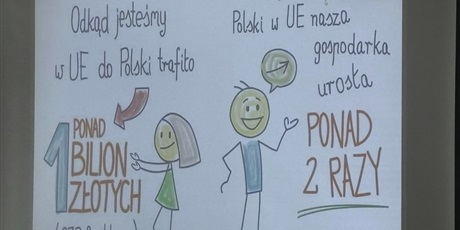 Odkąd jesteśmy
w UE do Polski trafiło
1 PONAD
BILION
ZŁOTYCH
Polski w UE nasza
gospodarka
urosła
PONAD
2 RAZY